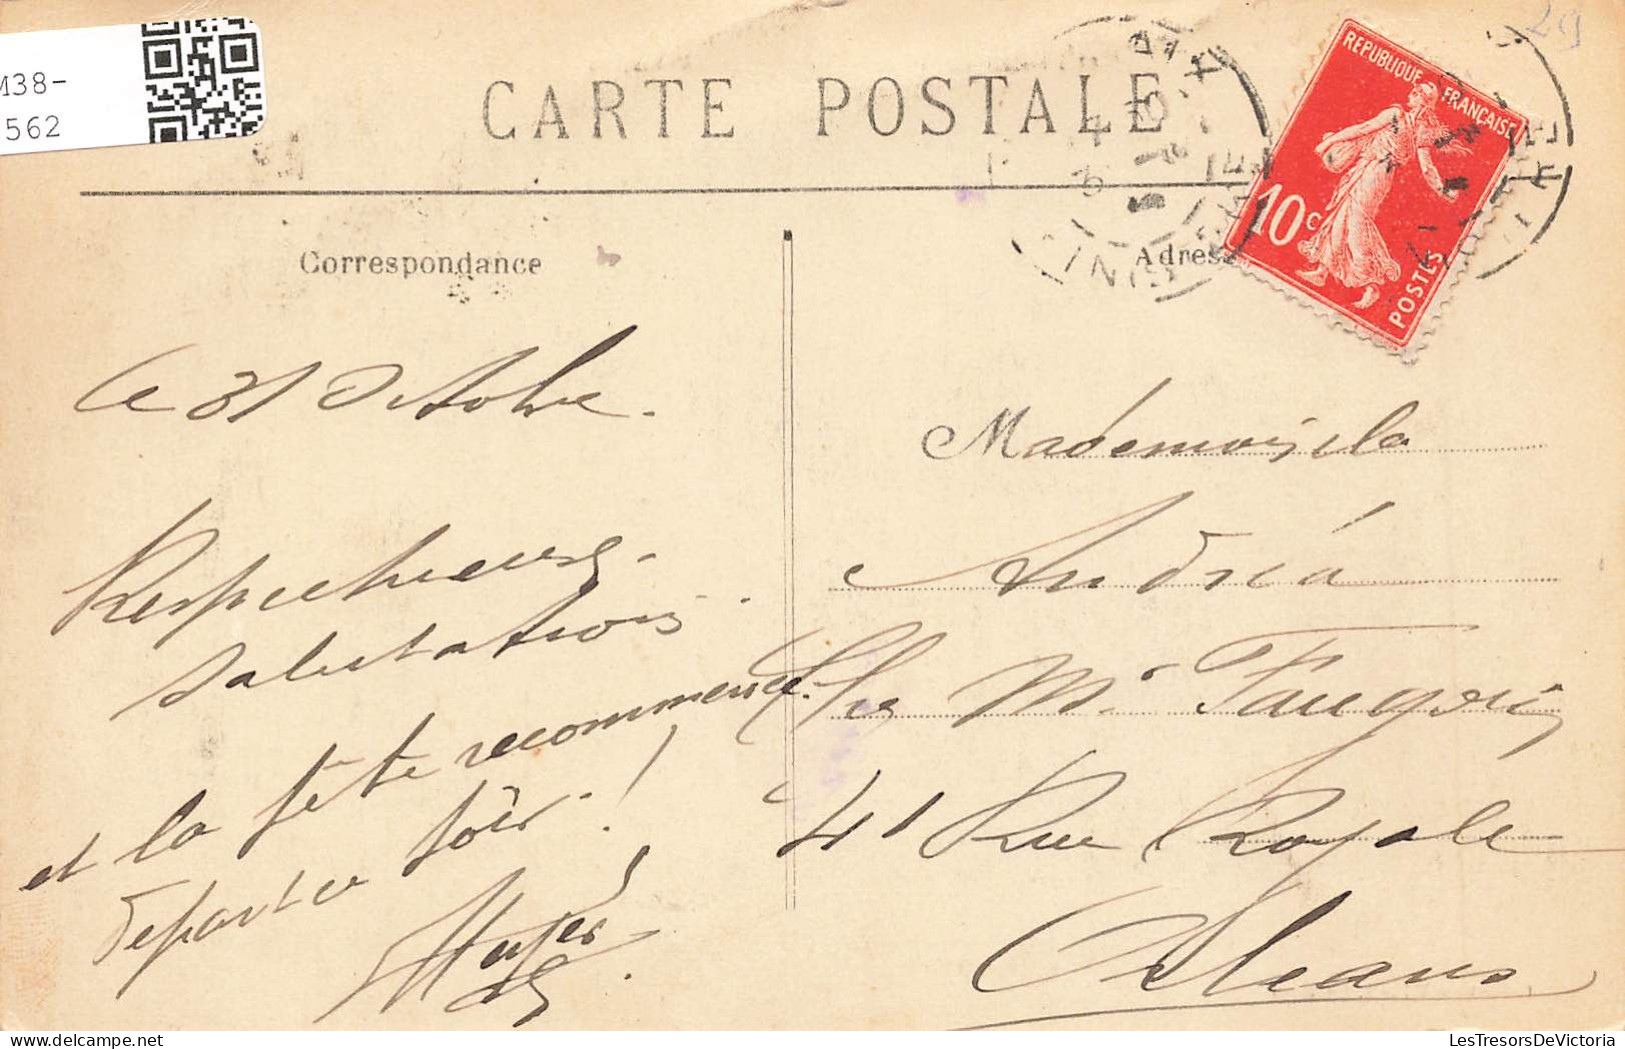 M38-
562
CARTE POSTALE
REPUBLIQUE FRANÇAISE
10 c
POSTES
Correspondance
Adresse
Le 31 Octobre.
Respectueuses
salutations.
et la fête recommence
départ ce soir !
Mademoiselle
Andréa
Chez Mr
41 Rue Royale
Orléans
LesTresorsDeVictoria